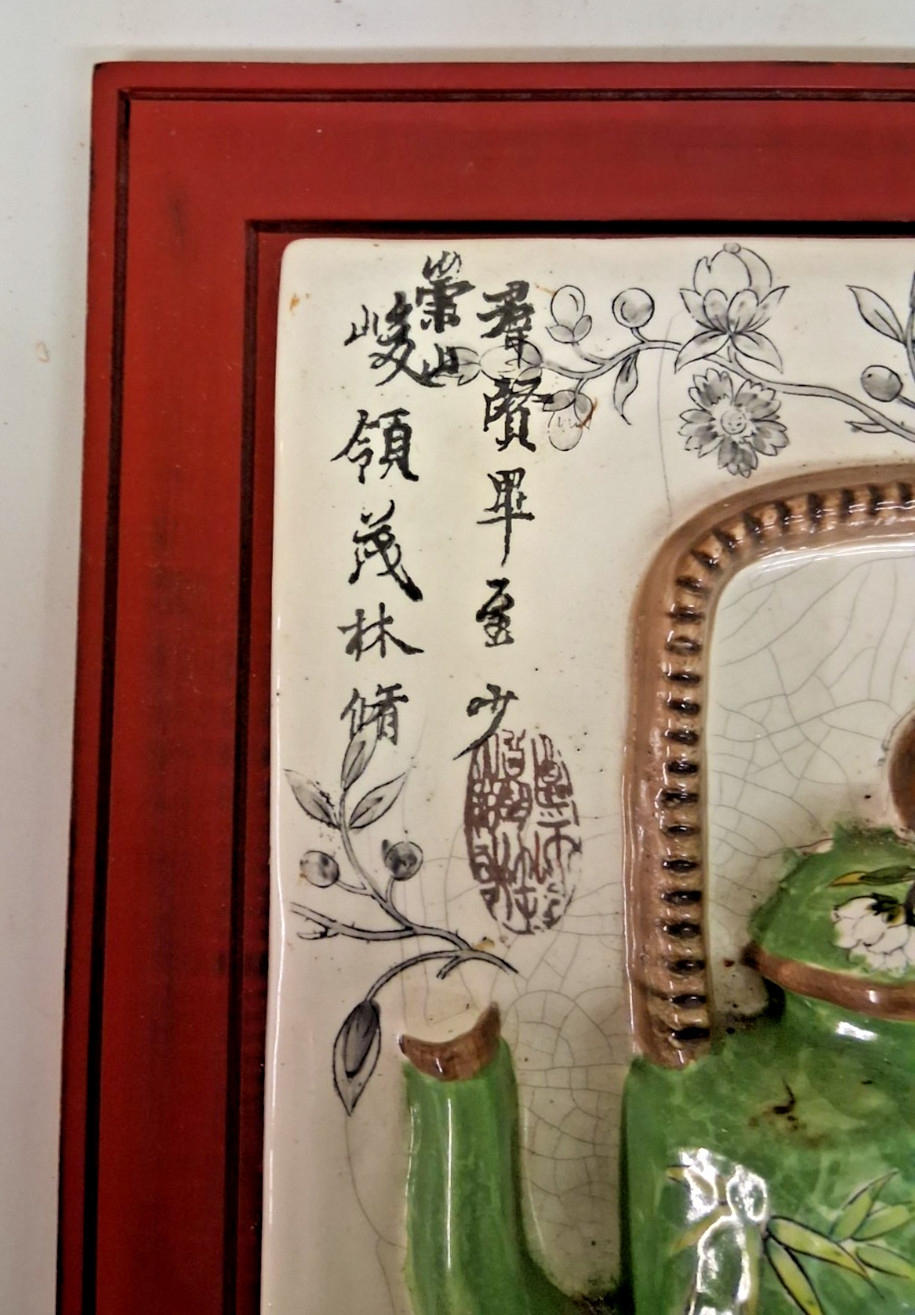 羣賢畢至少
崇山
峻領茂林脩